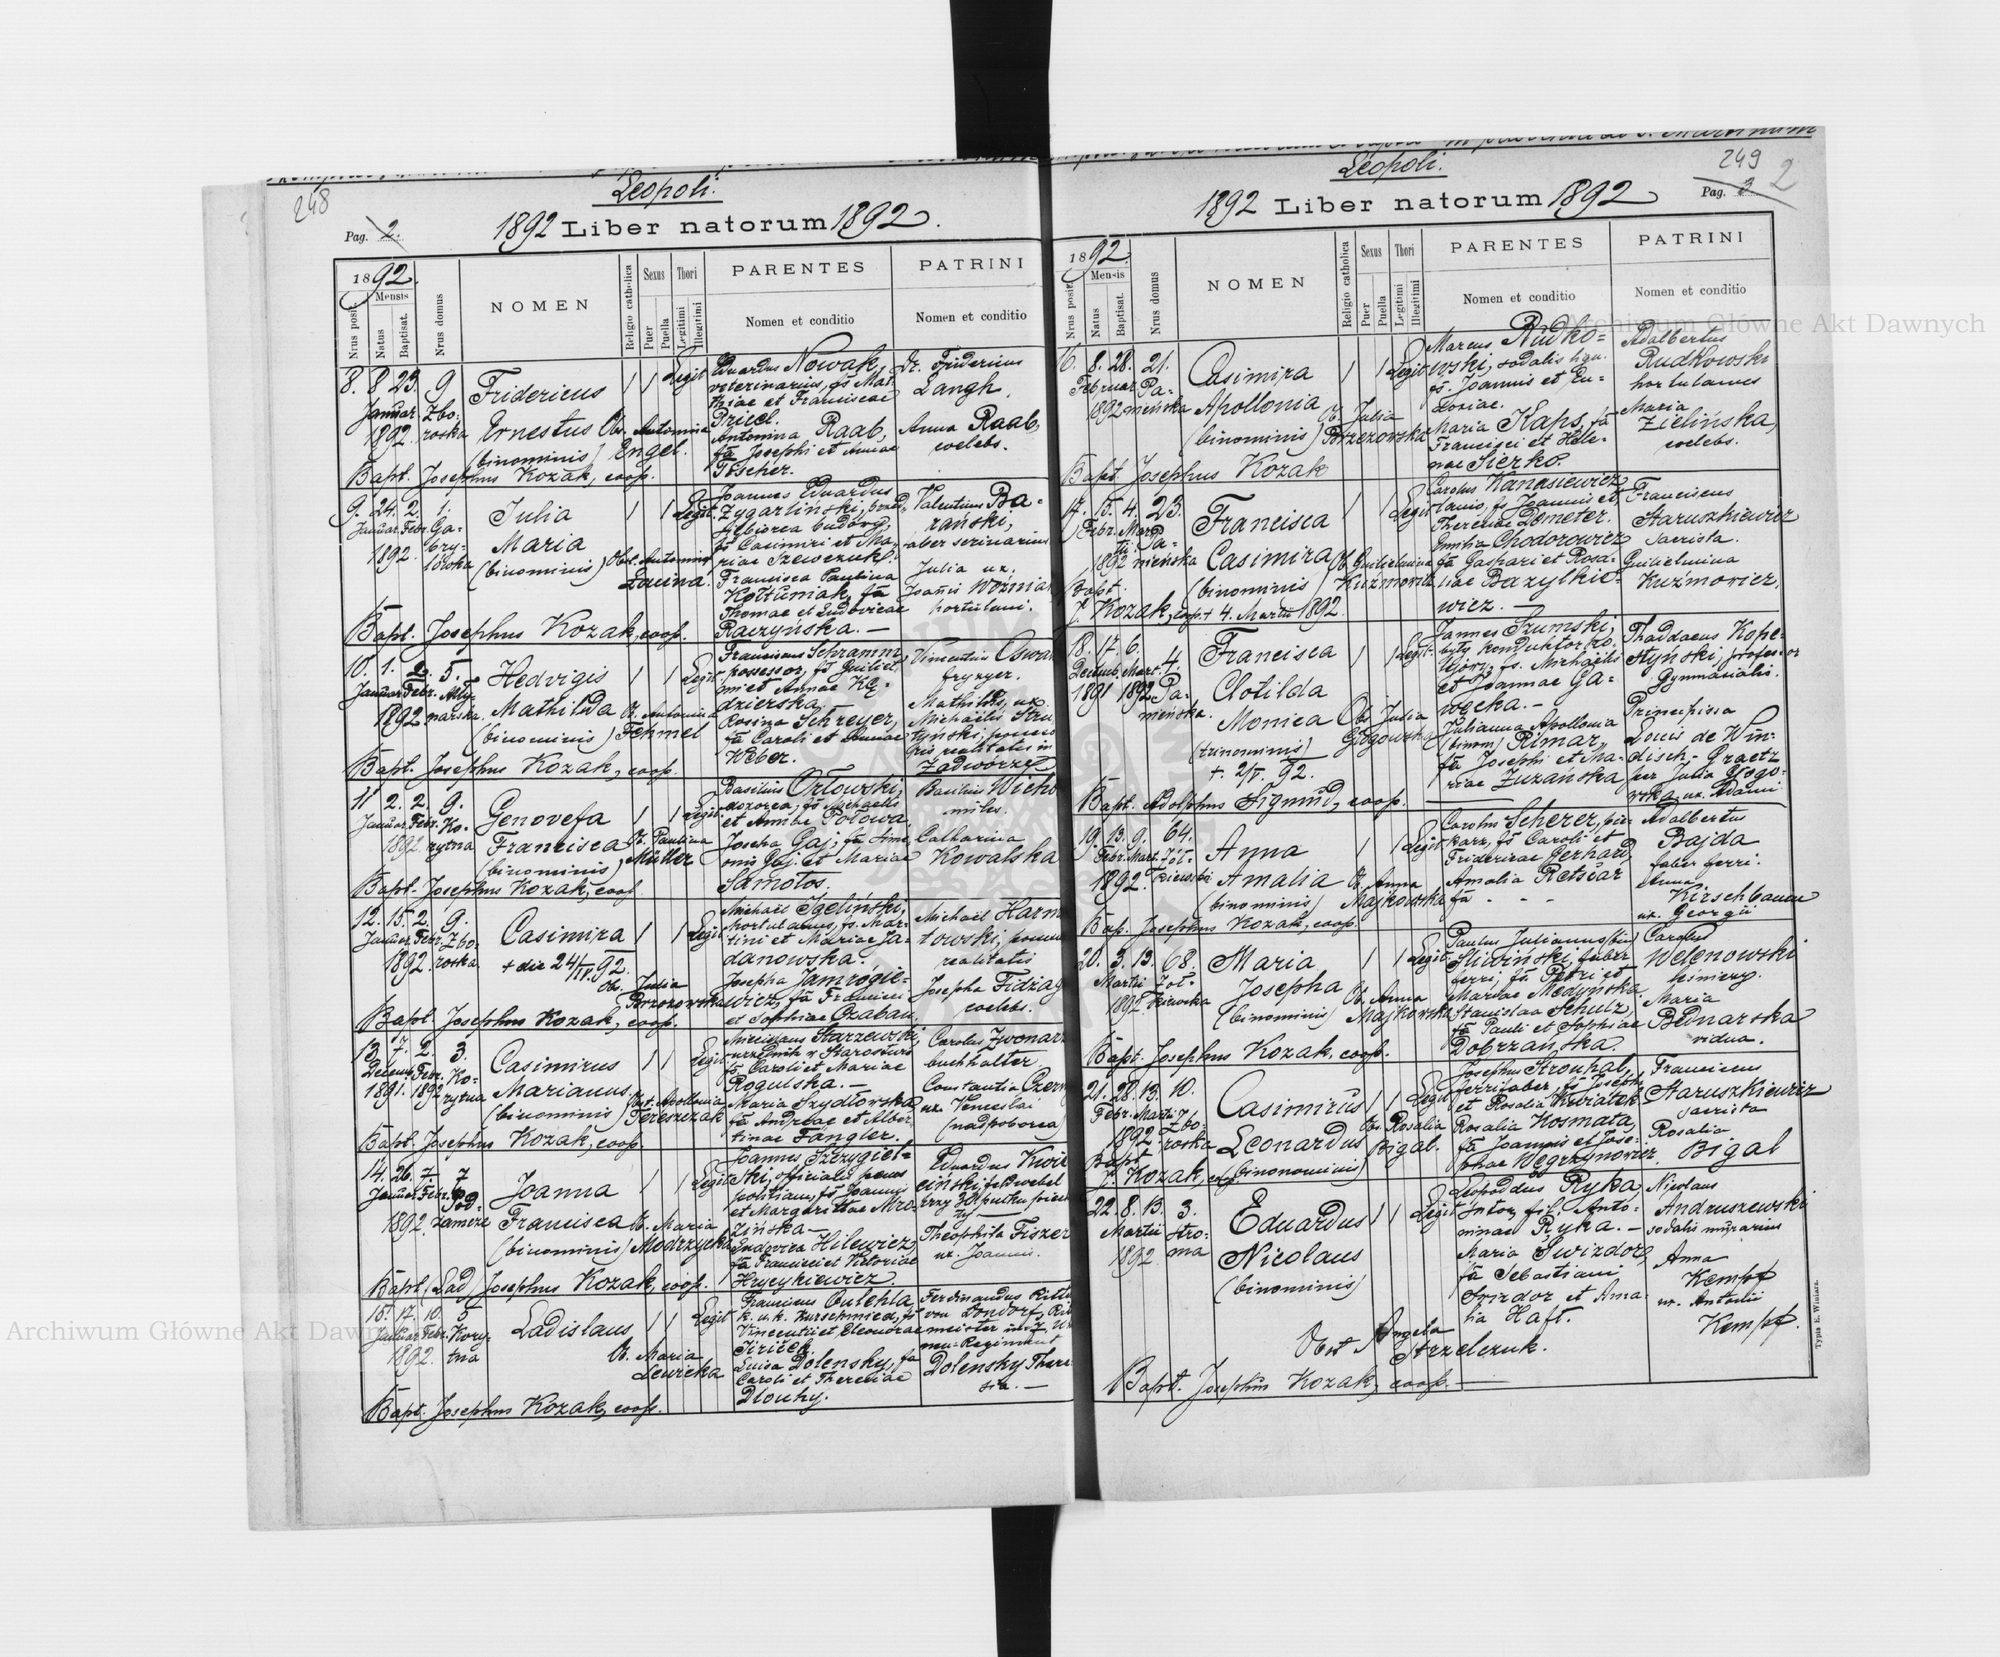 Leopoli.
248
Pag. 2.
1892 Liber natorum 1892.
1892.
Mensis
Nrus posit.
Natus
Baptisat.
Nrus domus
NOMEN
Religio catholica
Sexus
Puer
Puella
Thori
Legitimi
Illegitimi
PARENTES
Nomen et conditio
PATRINI
Nomen et conditio
8. 8 23. 9
Januar Zbo-
1892. roska
Fridericus
Ernestus
(binominis)
Obs. Antonina
Engel.
Legit
Eduardus Nowak,
veterinarius, fs Mat-
thiae et Franciscae
Pricel.
Antonina Raab,
fa Josephi et Annae
Fischer.
Dr. Fridericus
Langh.
Anna Raab,
coelebs.
Bapt. Josephus Kozak, coop.
9. 24. 2. 1.
Januar. Febr. Ga-
bry-
1892. lowka
Julia
Maria
(binominis)
Obst. Antonina
Lacina.
Legit.
Joannes Eduardus
Zygarliński,
fs Casimiri et Ma-
riae Szewczuk.
Francisca Paulina
Kottuniak, fa
Thomae et Ludovicae
Raczyńska. —
Valentinus Ba-
rański,
faber scriniarius
Julia ux.
Joañi Woźniak
hortulani.
Bapt. Josephus Kozak, coop.
10. 1. 2. 5.
Januar. Febr. Mły-
1892. narska.
Hedvigis
Mathilda
(binominis)
Ob. Antonina
Fehmel
Legit.
Franciscus Schramm,
possessor, fs Guiliel-
mi et Annae Kę-
dzierska,
Rosina Schreyer,
fa Caroli et Annae
Weber.
Vincentius Oswal
fryzyer.
Mathilda, ux.
Michaelis Stru-
tyński, posses-
soris realitatis in
Zadwórze
Bapt. Josephus Kozak, coop.
11 2. 2. 9.
Januar. Febr. Ko-
1892. rytna
Genovefa
Francisca
(binominis)
Ob. Paulina
Müller
Legit.
Basilius Orłowski,
dozorca, fs Michaelis
et Annae Połowa,
Josepha Gaj, fa Sime-
onis Gaj et Mariae
Samotos.
Basilius Wicho
miles.
Catharina
Kowalska
Bapt. Josephus Kozak, coop.
12. 15. 2. 9.
Januar. Febr. Zbo-
1892. roska.
Casimira
+ die 24/IV. 92.
Obs. Julia
Brzozowska
Legit
Michaël Igeliński,
hortulanus, fs. Mar-
tini et Mariae Ja-
danowska.
Josepha Jamrógie-
wicz, fa Francisci
et Sophiae Baban.
Michaël Harm
towski, posses
realitatis
Josepha Fidzag
coelebs.
Bapt. Josephus Kozak, coop.
13. 7. 2. 3.
Decemb. Febr. Ko-
1891. 1892 rytna
Casimirus
Marianus
(binominis)
Obst. Apollonia
Tereszczak
Legit
Miecislaus Starzewski,
urzędnik v Starostwie
fs Caroli et Mariae
Rogulska. —
Maria Szydłowska,
fa Andreae et Alber-
tinae Fangler.
Carolus Zwonarz
buchhalter
Constantia Czerny
ux. Venceslai
(nadporucz)
Bapt. Josephus Kozak, coop.
14. 26. 7. 7
Januar. Febr. Pod-
1892. zamcze
Joanna
Francisca
(binominis)
Ob. Maria
Modrzycka
Legit
Joannes Szczygiel-
ski, officialis pens
fs Joannis
et Margarithae Mro-
zińska —
Ludovica Hilewicz,
fa Francisci et Victoriae
Hrycykiewicz.
Eduardus Kwie
ciński, feldwebel
przy 30 pułku piecho
ty
Theophila Fiszer
ux. Joannis.
Bapt. (Lad) Josephus Kozak, coop.
15. 17. 10. 5
Januar Febr. Kory-
1892. tna
Ladislaus
Ob. Maria
Lewicka
Legit
Franciscus Oulehla,
k. u. k. Kurschmied, fs
Vincentii et Eleonorae
Jiriček.
Luisa Dolensky, fa
Caroli et Theresiae
Dlouhy.
Ferdinandus Ritt
von Dondorf, Rit
meister
nen-Regiment
Dolensky There
sia. —
Bapt. Josephus Kozak, coop.
Leopoli.
249
2
Pag. 3
1892 Liber natorum 1892
1892.
Mensis
Nrus posit.
Natus
Baptisat.
Nrus domus
NOMEN
Religio catholica
Sexus
Puer
Puella
Thori
Legitimi
Illegitimi
PARENTES
Nomen et conditio
PATRINI
Nomen et conditio
16. 8. 28. 21.
Februar. Pa-
1892 mieńska
Casimira
Apollonia
(binominis)
Ob. Julia
Brzezowska
Legit
Marcus Rudko-
wski, sodalis lign.
fs. Joannis et Eu-
doxiae.
Maria Kaps, fa
Francisci et Hele-
nae Sierko.
Adalbertus
Rudkowski
hortulanus
Maria
Zielińska,
coelebs.
Bapt. Josephus Kozak
17. 15. 4. 23.
Febr. Martii Pa-
1892 mieńska
Francisca
Casimira
(binominis)
Ob Guilielmina
Kuzmowicz
Legit
Carolus Kanasiewicz,
fs Joannis et
Theresiae Demeter.
Emilia Chodorowicz
fa Gaspari et Rosa-
liae Bazylkie-
wicz. —
Franciscus
Staruszkiewicz
sacrista.
Guilielmina
Kuzmowicz.
Bapt.
J. Kozak, coop. + 4. Martii 1892.
18. 17. 6. 4.
Decemb. Mart.
1891 1892 Pa-
mieńska.
Francisca
Clotilda
Monica
(trinominis)
+. 2/V. 92.
Ob. Julia
Głogowska
Legit.
Joannes Szumski,
były konduktor ko-
lejowy, fs. Michaëlis
et Joannae Ga-
węcka. —
Julianna Apollonia
(binom) Rimar,
fa Josephi et Ma-
riae Zuzanska
Thaddaeus Kope-
styński, professor
Gymnasialis.
Principissa
Louis de Win-
disch-Graetz
per Julia Głogo-
wska ux. Adami
Bapt. Adolphus Sigmund, coop.
19. 13. 9. 64.
Febr. Mart. Żół-
1892. kiewska
Anna
Amalia
(binominis)
Ob. Anna
Majkowska
Legit
Carolus Scherer, pie-
karz, fs Caroli et
Fridericae Gerhard,
Amalia Retsiar
fa - - -
Adalbertus
Bajda
faber ferri.
Anna
Kirschbaum
ux. Georgii
Bap. Josephus Kozak, coop.
20. 3. 13. 68.
Martii Żół-
1892. kiewska
Maria
Josepha
(binominis)
Ob. Anna
Majkowska
Legit
Paulus Julianus (bin)
Sliwiński, faber
ferri, fs Petri et
Mariae Medyńska
Stanislaa Schulz,
fa Pauli et Sophiae
Dobrzańska.
Carolus
Welenowski
leśniczy.
Maria
Bednarska
vidua.
Bapt. Josephus Kozak, coop.
21. 28. 13. 10.
Febr. Martii Zbo-
1892 roska
Casimirus
Leonardus
(binonominis)
Ob. Rosalia
Bigal.
Legit
Josephus Strouhal,
ferrifaber, fs Josephi
et Rosalia Kwiatek
Rosalia Kosmata,
fa Joannis et Jose-
phae Węgrzynowicz.
Franciscus
Staruszkiewicz
sacrista
Rosalia
Bigal
Bapt
J. Kozak, coop
22. 8. 13. 3.
Martii Stro-
1892 ma
Eduardus
Nicolaus
(binominis)
Legit
Leopoldus Ryka,
fil. Anto-
ninae Ryka. —
Maria Swizdor,
fa Sebastiani
Swizdor et Ama-
lia Haft.
Nicolaus
Andruszewski
sodalis murarius
Anna
Kempf
ux. Antonii
Kempf.
Obst Angela
Strzelczuk.
Bapt. Josephus Kozak, coop. —
Typis E. Winiarz.
Archiwum Główne Akt Dawnych
Archiwum Główne Akt Dawnych